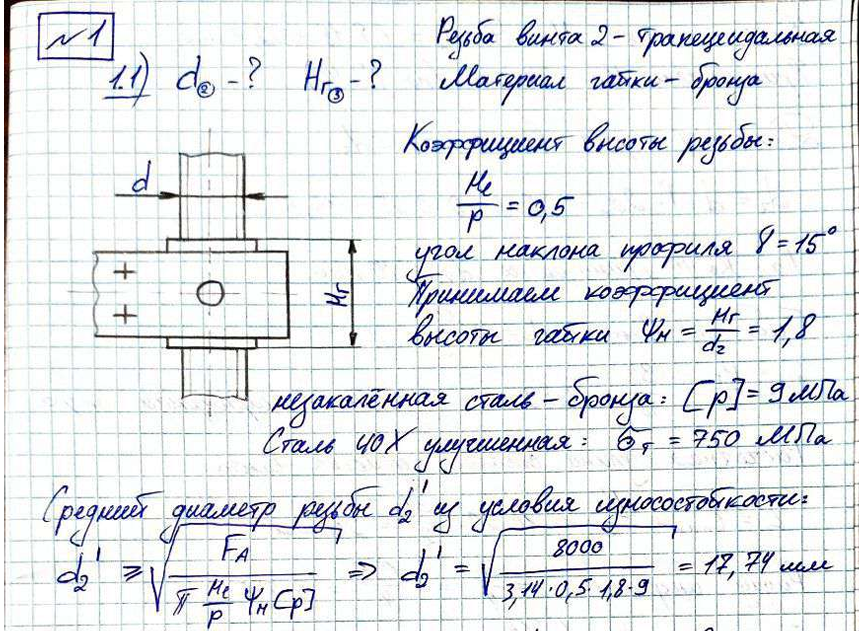 №1
Резьба винта 2 - трапецеидальная
1.1) d② - ? Hг③ - ? Материал гайки - бронза
Коэффициент высоты резьбы:
d
He/p = 0,5
угол наклона профиля γ = 15°
Принимаем коэффициент
Hг
высоты гайки Ψн = Hг/d₂ = 1,8
незакалённая сталь - бронза: [p] = 9 мПа
Сталь 40X улучшенная: σт = 750 МПа
Средний диаметр резьбы d₂' из условия износостойкости:
d₂' ≥ √(FA / (π He/p Ψн [p])) => d₂' = √(8000 / (3,14·0,5·1,8·9)) = 17,74 мм